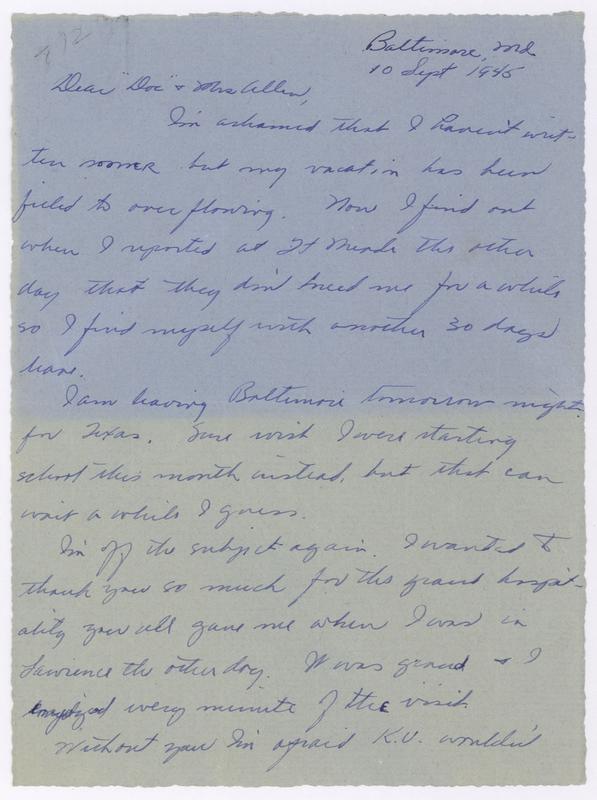 892
Baltimore, Md
10 Sept 1945
Dear "Doc" & Mrs Allen,
I'm ashamed that I haven't writ-
ten sooner but my vacation has been
filled to overflowing. Now I find out
when I reported at Ft Meade the other
day that they don't need me for a while
so I find myself with another 30 days'
leave.
I am leaving Baltimore tomorrow night
for Texas. Sure wish I were starting
school this month instead, but that can
wait a while I guess.
I'm off the subject again. I wanted to
thank you so much for the grand hospit-
ality you all gave me when I was in
Lawrence the other day. It was grand & I
enjoyed every minute of the visit.
Without you I'm afraid K.U. wouldn't